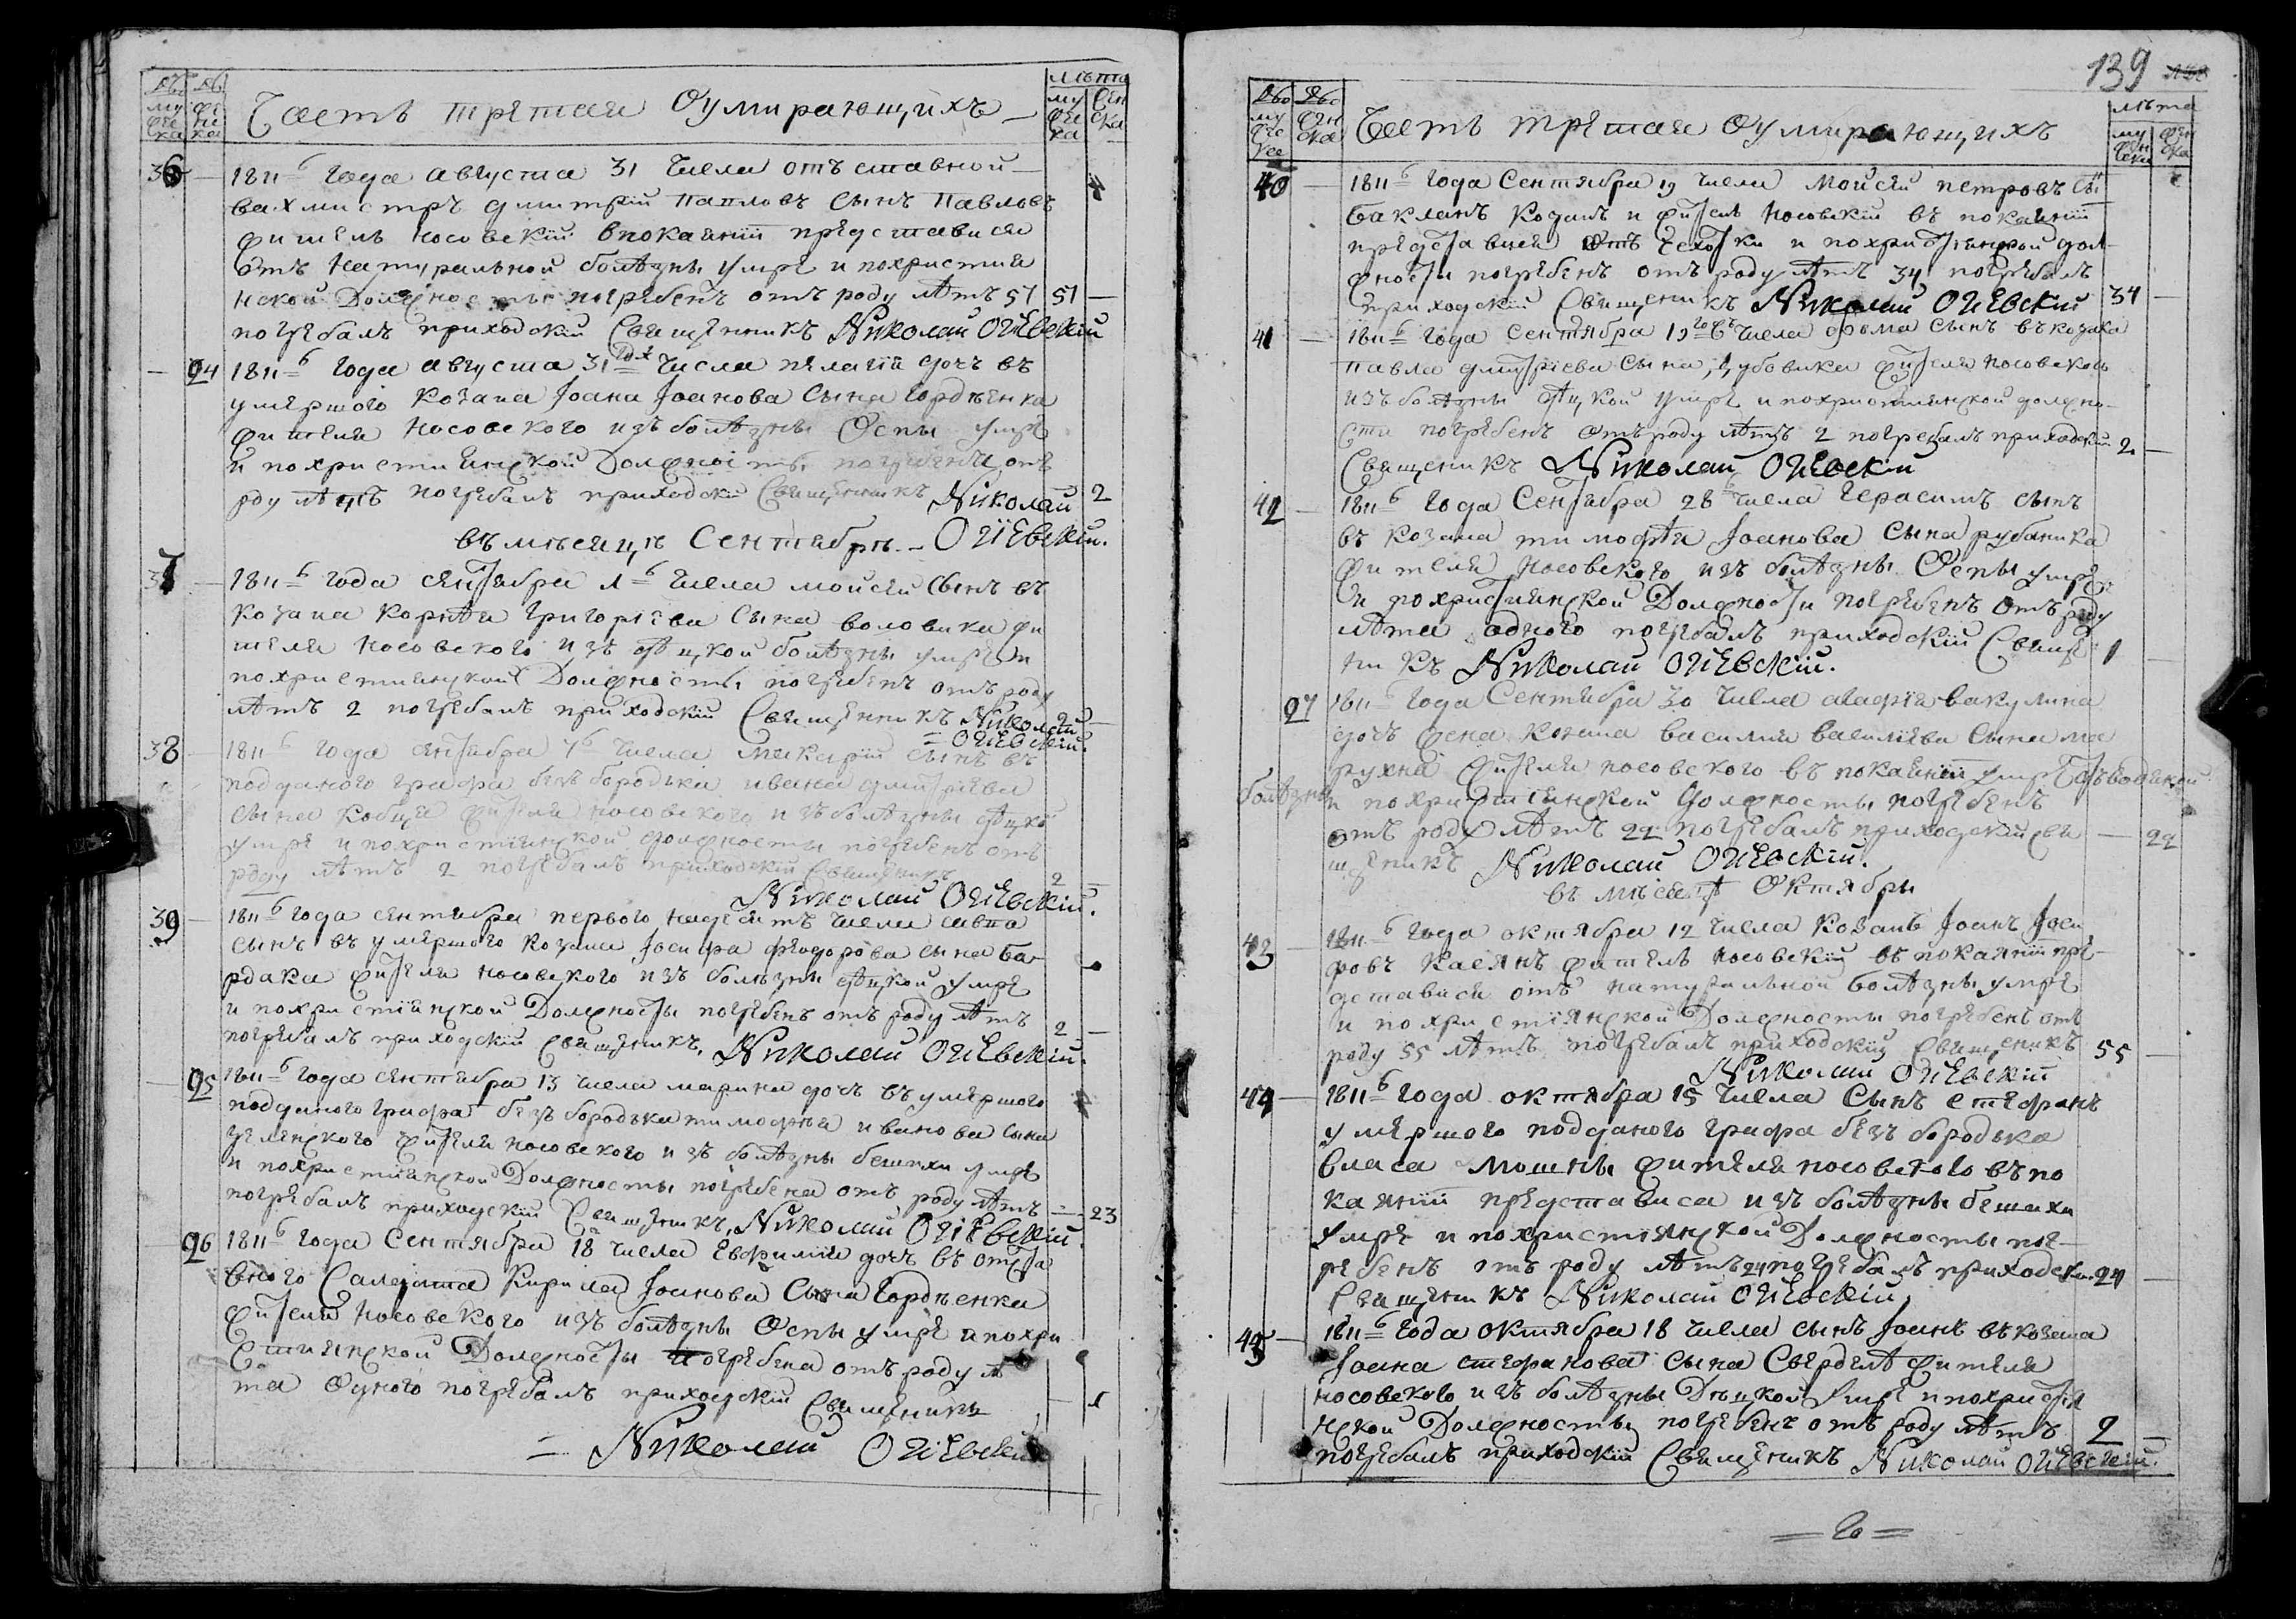 Часть третая Оумирающихъ
муже ска
лѣта
36 1811 года августа 31 числа отъставной
вахмистръ Дмитрій Павловъ сынъ Павловъ
житель носовскій впокаяніи представися
отъ натуральной болѣзны умре и похристия
нской должность погребенъ отъ роду лѣтъ 51 51
погребалъ приходскій Священникъ Николай Огіевскій
24 1811 года августа 31 числа пелагія дочъ въ
умершого козака Іоана Іоанова сына Гордѣенка
жителя носовского изъ болѣзны Оспы умре
и похристиянской Должность погребена отъ
роду лѣтъ погребалъ приходскій Священникъ Николай 2
въ мѣсяцѣ Сентябрѣ Огіевскій.
37 1811 года сентября 1 числа мойсей сынъ въ
козака корнѣя григоріева сына воловика жи
теля носовского изъ дѣцкой болѣзны умре и
похристиянской Должность погребенъ отъ роду
лѣтъ 2 погребалъ приходскій Священникъ Николай 2
Огіевскій.
38 1811 года сентября 7 числа макарій сынъ въ
подданого графа безъбородька ивана дмитріева
сына жителя носовского изъ болѣзны дѣцкой
умре и похристиянской должносты погребенъ отъ
роду лѣтъ 2 погребалъ приходскій Священикъ 2
Николай Огіевскій.
39 1811 года сентября первого надесять числа сава
сынъ въ умершого козака Іосифа федорова сына ба
рдака жителя носовского изъ болѣзны дѣцкой умре
и похристиянской Должносты погребенъ отъ роду лѣтъ 2
погребалъ приходскій Священикъ Николай Огіевскій.
25 1811 года сентября 13 числа марина дочъ въ умершого
подданого графа безъбородька тимофея иванова сына
зеленского жителя носовского изъ болѣзны бешихи умре
и похристиянской Должносты погребена отъ роду лѣтъ 23
погребалъ приходскій Священикъ Николай Огіевскій.
26 1811 года Сентября 18 числа Евфимія дочъ въ отста
вного Салдата Кирила Іоанова Сына Гордѣенка
жителя носовского изъ болѣзны Оспы умре и похри
стиянской Должносты погребена отъ роду лѣ
та одного погребалъ приходскій Священикъ 1
Николай Огіевскій
139
Часть третая Оумирающихъ
лѣта
40 1811 года Сентября 19 числа Мойсей петровъ сы
бакланъ козакъ и житель носовскій въ покаяніи
представися отъ сухотки и похристиянской дол
жности погребенъ отъ роду лѣтъ 34 погребалъ
приходскій Священикъ Николай Огіевскій 34
41 1811 года Сентября 19 числа фома сынъ въ козака
павла дмитріева сына дубовика жителя носовского
изъ болѣзны дѣцкой умре и похристиянской должно
сти погребенъ отъ роду лѣтъ 2 погребалъ приходскій 2
Священикъ Николай Огіевскій
42 1811 года Сентября 28 числа Герасимъ сынъ
въ козака тимофѣя Іоанова Сына рубаника
жителя носовского изъ болѣзны Оспы умре
и похристиянской Должности погребенъ отъ роду
лѣта одного погребалъ приходскій Свяще 1
никъ Николай Огіевскій.
27 1811 года Сентября 30 числа агафія вакулина
дочъ жена козака василия василіева сына ма
рухна жителя носовского въ покаяніи умре отъ водяной
болѣзны и похристиянской должносты погребенъ
отъ роду лѣтъ 22 погребалъ приходскій свя 22
щеникъ Николай Огіевскій.
въ мѣсяцѣ Октября
43 1811 года октября 12 числа Козакъ Іоанъ Іоси
фовъ Касянъ житель носовскій въ покаяніи пре
дставися отъ натуральной болѣзны умре
и похристиянской Должносты погребенъ отъ
роду 55 лѣтъ погребалъ приходскій Священикъ 55
Николай Огіевскій
44 1811 года октября 15 числа Сынъ стефанъ
умершого подданого графа безъбородька
Власа Мошны жителя носовского въ по
каяніи представися изъ болѣзны бешихи
умре и похристиянской Должносты пог
ребенъ отъ роду лѣтъ 24 погребалъ приходскій 24
Священикъ Николай Огіевскій
45 1811 года октября 18 числа сынъ Іоанъ въ козака
Іоана стефанова сына Свердла жителя
носовского изъ болѣзны Дѣцкой умре и похристия
нской Должносты погребенъ отъ роду лѣтъ 2
погребалъ приходскій Священикъ Николай Огіевскій.